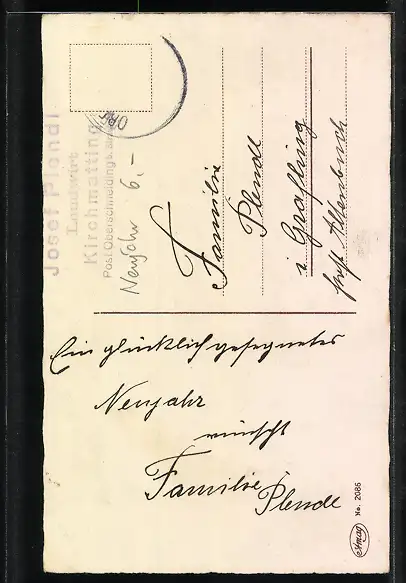 Josef Plendl
Landwirt
Kirchmatting
Post Oberschneiding
Neujahr 6,-
Familie
Plendl
i Grafling
Post Allenbuch
Ein glücklich gesegnetes
Neujahr
wünscht
Familie Plendl
Amag
No. 2086